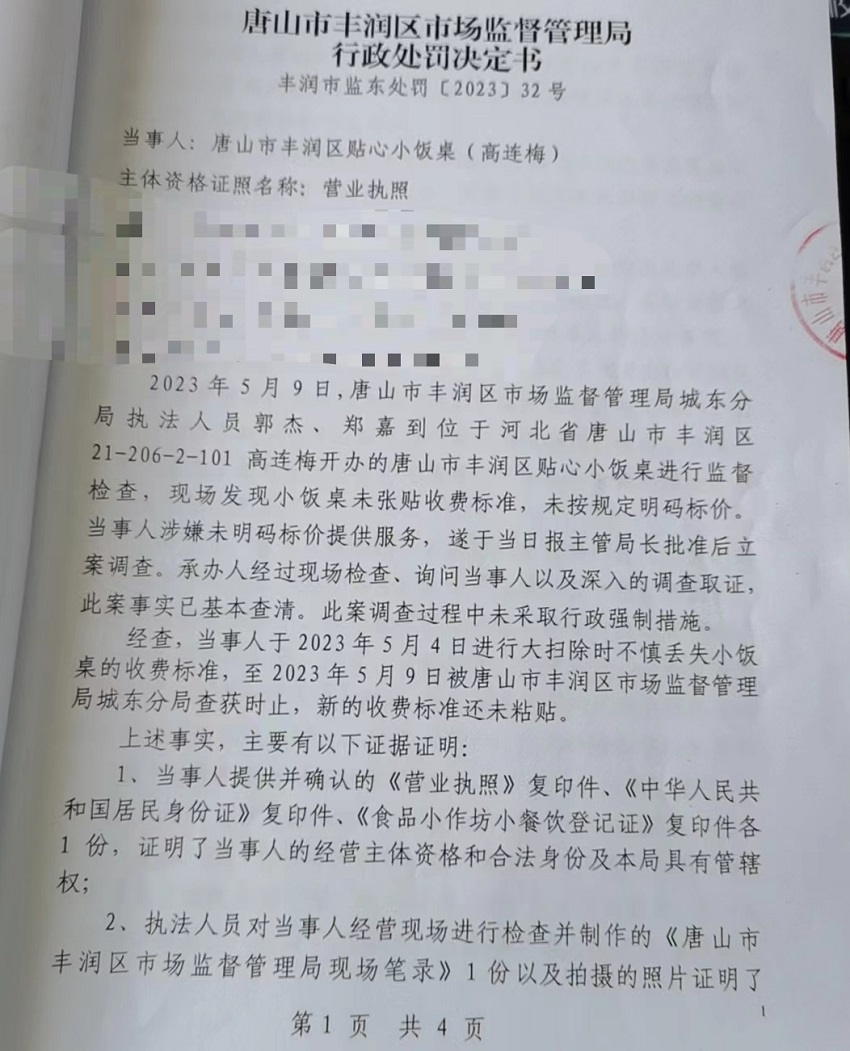 唐山市丰润区市场监督管理局
行政处罚决定书
丰润市监东处罚〔2023〕32号
当事人：唐山市丰润区贴心小饭桌（高连梅）
主体资格证照名称：营业执照
2023年5月9日,唐山市丰润区市场监督管理局城东分
局执法人员郭杰、郑嘉到位于河北省唐山市丰润区
21-206-2-101 高连梅开办的唐山市丰润区贴心小饭桌进行监督
检查，现场发现小饭桌未张贴收费标准，未按规定明码标价。
当事人涉嫌未明码标价提供服务，遂于当日报主管局长批准后立
案调查。承办人经过现场检查、询问当事人以及深入的调查取证，
此案事实已基本查清。此案调查过程中未采取行政强制措施。
经查，当事人于2023年5月4日进行大扫除时不慎丢失小饭
桌的收费标准，至2023年5月9日被唐山市丰润区市场监督管理
局城东分局查获时止，新的收费标准还未粘贴。
上述事实，主要有以下证据证明：
1、当事人提供并确认的《营业执照》复印件、《中华人民共
和国居民身份证》复印件、《食品小作坊小餐饮登记证》复印件各
1份，证明了当事人的经营主体资格和合法身份及本局具有管辖
权；
2、执法人员对当事人经营现场进行检查并制作的《唐山市
丰润区市场监督管理局现场笔录》1份以及拍摄的照片证明了
1
第1页 共4页